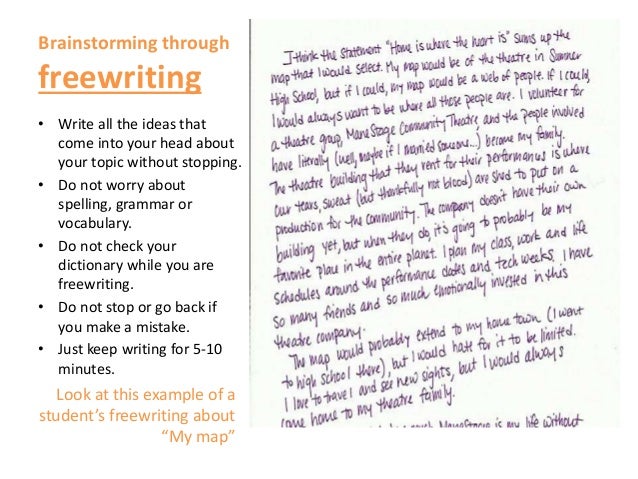 Brainstorming through
freewriting
• Write all the ideas that
come into your head about
your topic without stopping.
• Do not worry about
spelling, grammar or
vocabulary.
• Do not check your
dictionary while you are
freewriting.
• Do not stop or go back if
you make a mistake.
• Just keep writing for 5-10
minutes.
Look at this example of a
student’s freewriting about
“My map”
I think the statement "Home is where the heart is" sums up the
map that I would select. My map would be of the theatre in Sumner
High School, but if I could, my map would be a web of people. If I could,
I would always want to be where all those people are. I volunteer for
a theatre group, ManeStage Community Theatre, and the people involved
have literally (well, maybe if I married someone...) become my family.
The theatre building that they rent for their performances is where
our tears, sweat (but thankfully not blood) are shed to put on a
production for the community. The company doesn't have their own
building yet, but when they do, it's going to probably be my
favorite place in the entire planet. I plan my class, work and life
schedules around the performance dates and tech weeks. I have
so many friends and so much emotionally invested in this
theatre company.
The map would probably extend to my home town (I went
to high school there), but I would hate for it to be limited.
I love to travel and see new sights, but I would always
come home to my theatre family.
ManeStage is my life without